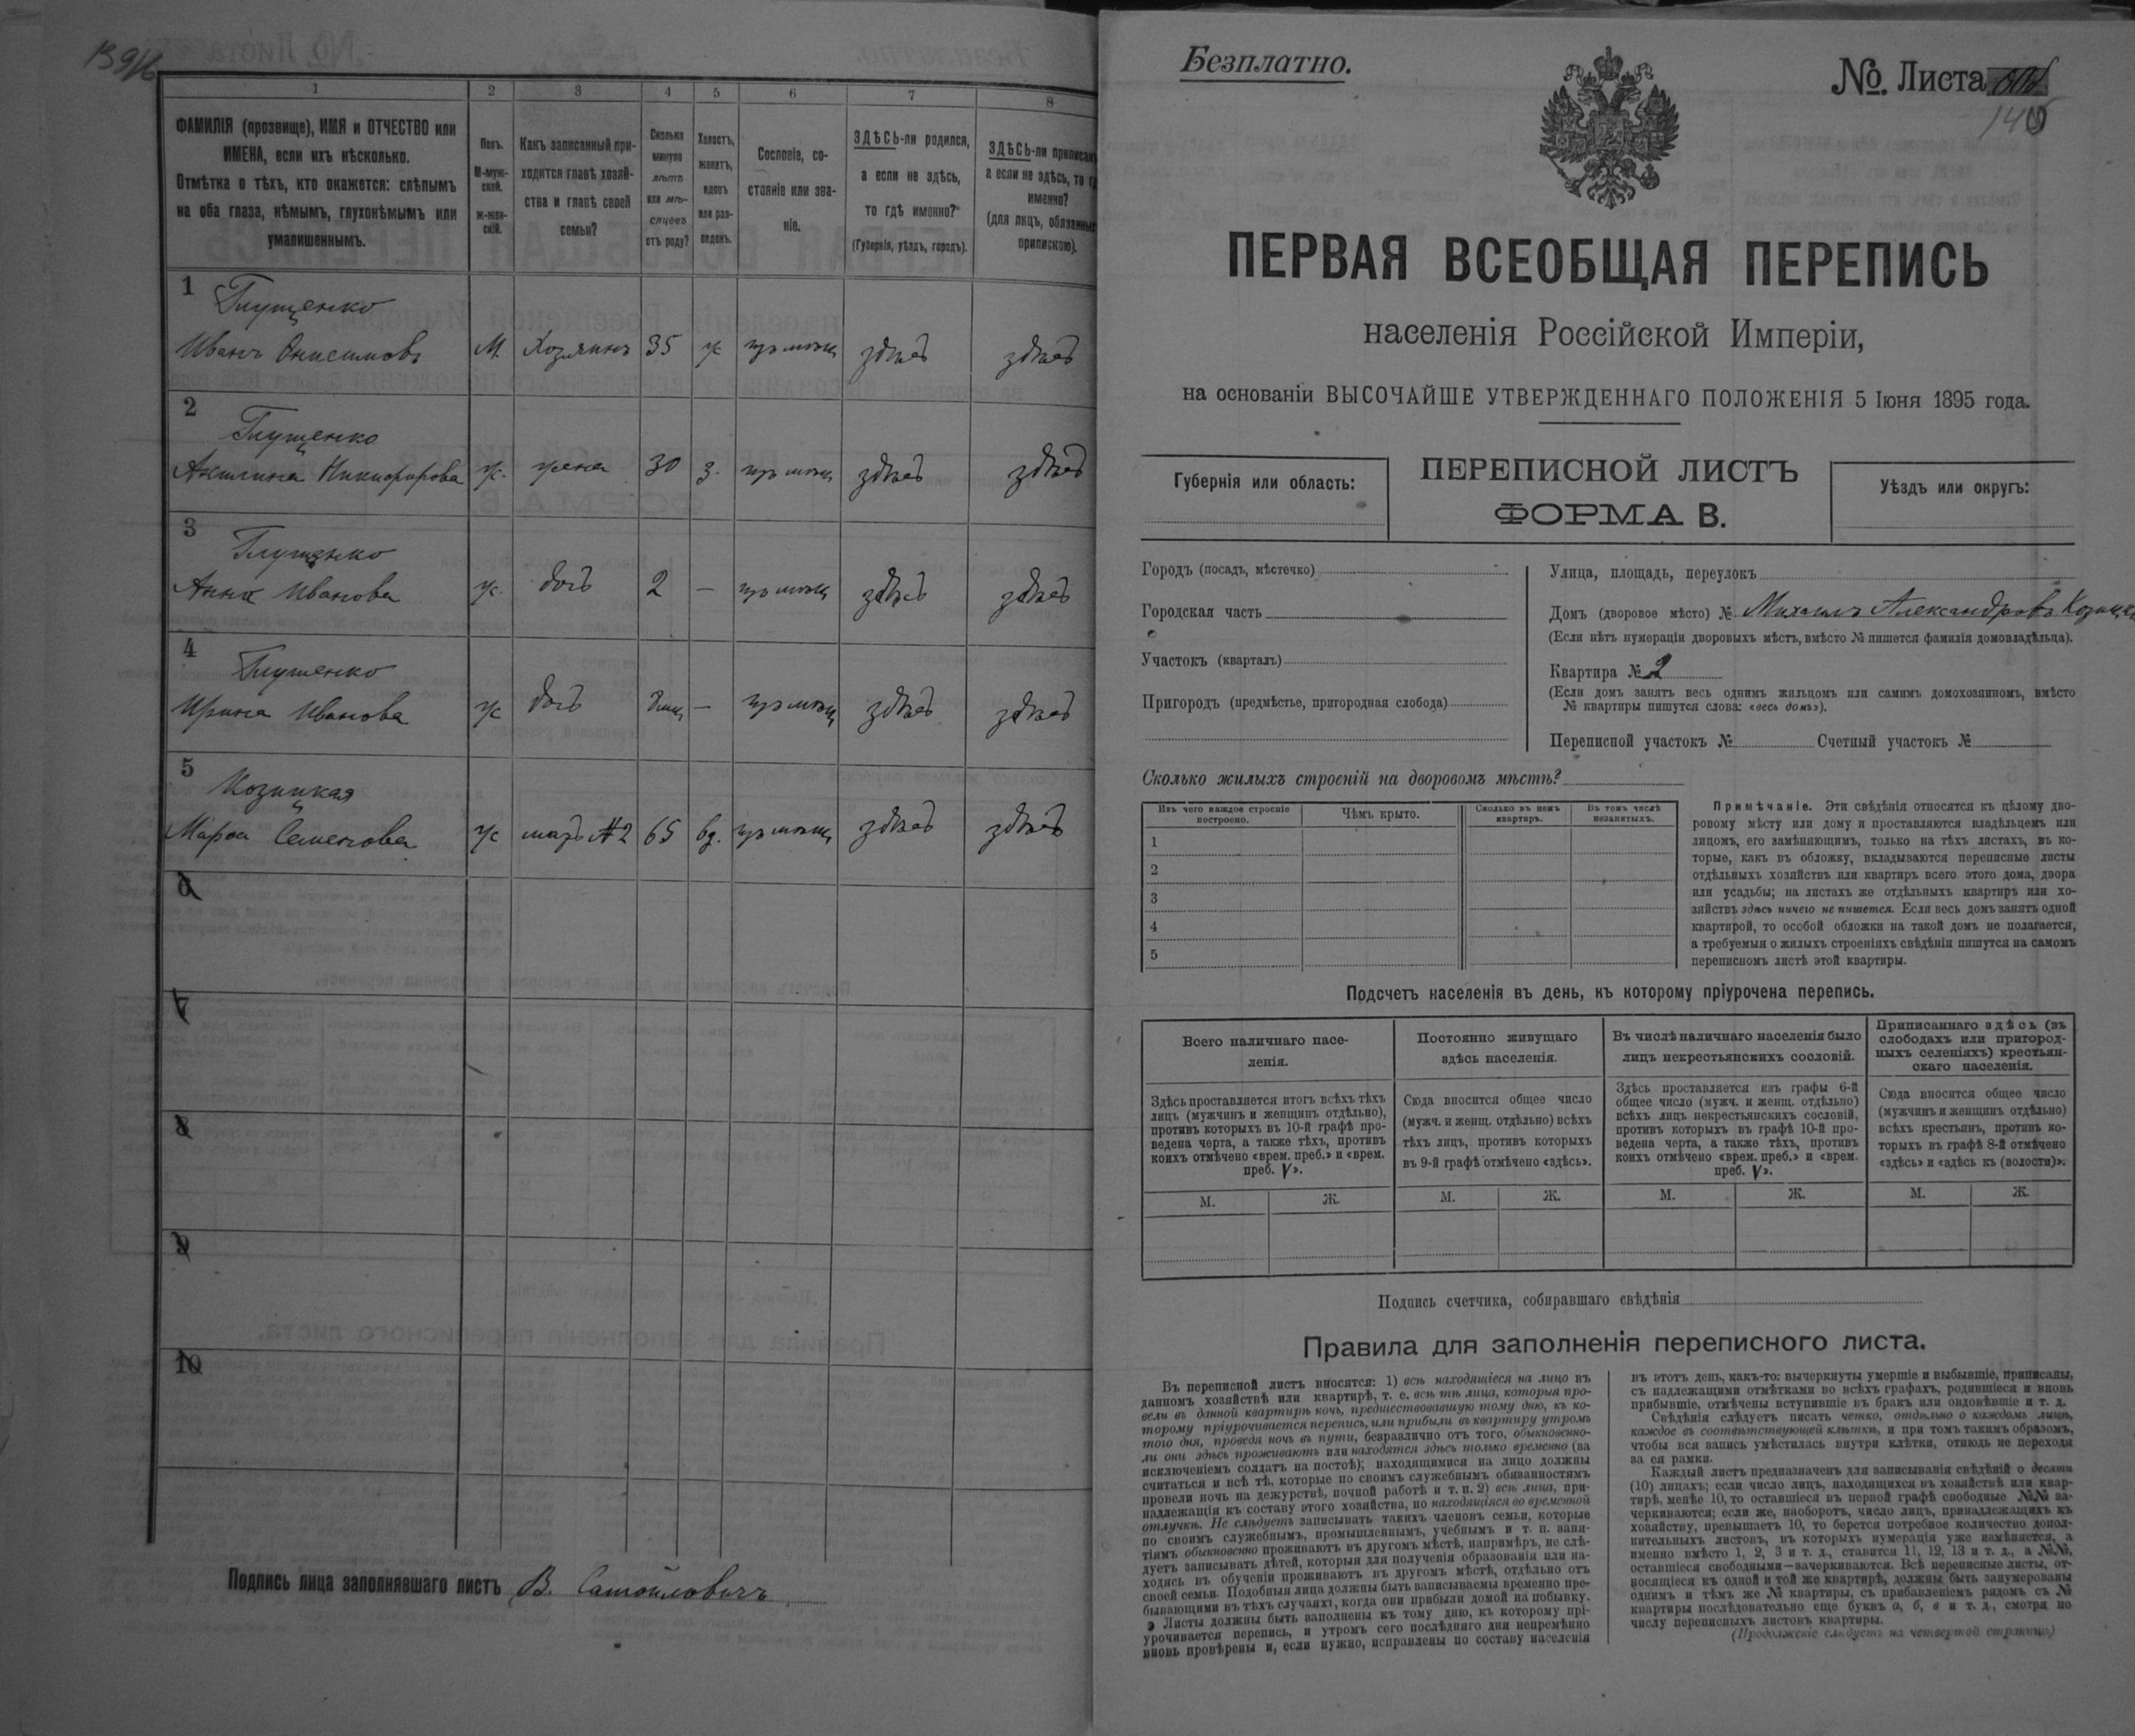 1 2 3 4 5 6 7 8
ФАМИЛІЯ (прозвище), ИМЯ и ОТЧЕСТВО или
ИМЕНА, если ихъ нѣсколько.
Отмѣтка о тѣхъ, кто окажется: слѣпымъ
на оба глаза, нѣмымъ, глухонѣмымъ или
умалишеннымъ.
Полъ.
М-муж-
ской.
ж-жен-
скій.
Какъ записанный при-
ходится главѣ хозяй-
ства и главѣ своей
семьи?
Сколько
минуло
лѣтъ
или мѣ-
сяцевъ
отъ роду?
Холостъ,
женатъ,
вдовъ
или раз-
веденъ.
Сословіе, со-
стояніе или зва-
ніе.
ЗДѢСЬ-ли родился,
а если не здѣсь,
то гдѣ именно?
(Губернія, уѣздъ, городъ).
ЗДѢСЬ-ли приписанъ
а если не здѣсь, то гд
именно?
(для лицъ, обязанныхъ
припискою).
1 Глущенко
Иванъ Онисимовъ М. Хозяинъ 35 ж здѣсь здѣсь
2 Глущенко
Акилина Никифорова ж. жена 30 з. здѣсь здѣсь
3 Глущенко
Анна Иванова ж. дочь 2 — здѣсь здѣсь
4 Глущенко
Ирина Иванова ж дочь — здѣсь здѣсь
5 Козицкая
Марѳа Семенова ж мать №2 65 вд. здѣсь здѣсь
6
7
8
9
10
Подпись лица заполнявшаго листъ В. Самойловичъ
Безплатно.
№. Листа
140
ПЕРВАЯ ВСЕОБЩАЯ ПЕРЕПИСЬ
населенія Россійской Имперіи,
на основаніи ВЫСОЧАЙШЕ УТВЕРЖДЕННАГО ПОЛОЖЕНІЯ 5 Іюня 1895 года.
Губернія или область:
ПЕРЕПИСНОЙ ЛИСТЪ
ФОРМА В.
Уѣздъ или округъ:
Городъ (посадъ, мѣстечко)
Городская часть
Участокъ (кварталъ)
Пригородъ (предмѣстье, пригородная слобода)
Улица, площадь, переулокъ
Домъ (дворовое мѣсто) № Михаилъ Александровъ
(Если нѣтъ нумераціи дворовыхъ мѣстъ, вмѣсто № пишется фамилія домовладѣльца).
Квартира № 2
(Если домъ занятъ весь однимъ жильцомъ или самимъ домохозяиномъ, вмѣсто
№ квартиры пишутся слова: «весь домъ»).
Переписной участокъ № Счетный участокъ №
Сколько жилыхъ строеній на дворовомъ мѣстѣ?
Изъ чего каждое строеніе
построено.
Чѣмъ крыто.
Сколько въ немъ
квартиръ.
Въ томъ числѣ
незанятыхъ.
1
2
3
4
5
Примѣчаніе. Эти свѣдѣнія относятся къ цѣлому дво-
ровому мѣсту или дому и проставляются владѣльцемъ или
лицомъ, его замѣняющимъ, только на тѣхъ листахъ, въ ко-
торые, какъ въ обложку, вкладываются переписные листы
отдѣльныхъ хозяйствъ или квартиръ всего этого дома, двора
или усадьбы; на листахъ же отдѣльныхъ квартиръ или хо-
зяйствъ здѣсь ничего не пишется. Если весь домъ занятъ одной
квартирой, то особой обложки на такой домъ не полагается,
а требуемыя о жилыхъ строеніяхъ свѣдѣнія пишутся на самомъ
переписномъ листѣ этой квартиры.
Подсчетъ населенія въ день, къ которому пріурочена перепись.
Всего наличнаго насе-
ленія.
Постоянно живущаго
здѣсь населенія.
Въ числѣ наличнаго населенія было
лицъ некрестьянскихъ сословій.
Приписаннаго здѣсь (въ
слободахъ или пригород-
ныхъ селеніяхъ) крестьян-
скаго населенія.
Здѣсь проставляется итогъ всѣхъ тѣхъ
лицъ (мужчинъ и женщинъ отдѣльно),
противъ которыхъ въ 10-й графѣ про-
ведена черта, а также тѣхъ, противъ
коихъ отмѣчено «врем. преб.» и «врем.
преб. V».
Сюда вносится общее число
(мужч. и женщ. отдѣльно) всѣхъ
тѣхъ лицъ, противъ которыхъ
въ 9-й графѣ отмѣчено «здѣсь».
Здѣсь проставляется изъ графы 6-й
общее число (мужч. и женщ. отдѣльно)
всѣхъ лицъ некрестьянскихъ сословій,
противъ которыхъ въ графѣ 10-й про-
ведена черта, а также тѣхъ, противъ
коихъ отмѣчено «врем. преб.» и «врем.
преб. V».
Сюда вносится общее число
(мужчинъ и женщинъ отдѣльно)
всѣхъ крестьянъ, противъ ко-
торыхъ въ графѣ 8-й отмѣчено
«здѣсь» и «здѣсь къ (волости)».
М. Ж. М. Ж. М. Ж. М. Ж.
Подпись счетчика, собиравшаго свѣдѣнія
Правила для заполненія переписного листа.
Въ переписной листъ вносятся: 1) всѣ находящіеся на лицо въ
данномъ хозяйствѣ или квартирѣ, т. е. всѣ тѣ лица, которыя про-
вели въ данной квартирѣ ночь, предшествовавшую тому дню, къ ко-
торому пріурочивается перепись, или прибыли въ квартиру утромъ
того дня, проведя ночь въ пути, безразлично отъ того, обыкновенно-
ли они здѣсь проживаютъ или находятся здѣсь только временно (за
исключеніемъ солдатъ на постоѣ); находящимися на лицо должны
считаться и всѣ тѣ, которые по своимъ служебнымъ обязанностямъ
провели ночь на дежурствѣ, ночной работѣ и т. п. 2) всѣ лица, при-
надлежащія къ составу этого хозяйства, но находящіяся во временной
отлучкѣ. Не слѣдуетъ записывать такихъ членовъ семьи, которые
по своимъ служебнымъ, промышленнымъ, учебнымъ и т. п. заня-
тіямъ обыкновенно проживаютъ въ другомъ мѣстѣ, напримѣръ, не слѣ-
дуетъ записывать дѣтей, которыя для полученія образованія или на-
ходясь въ обученіи проживаютъ въ другомъ мѣстѣ, отдѣльно отъ
своей семьи. Подобныя лица должны быть записываемы временно пре-
бывающими въ тѣхъ случаяхъ, когда они прибыли домой на побывку.
Листы должны быть заполнены къ тому дню, къ которому прі-
урочивается перепись, и утромъ сего послѣдняго дня непремѣнно
вновь провѣрены и, если нужно, исправлены по составу населенія
въ этотъ день, какъ-то: вычеркнуты умершіе и выбывшіе, приписаны,
съ надлежащими отмѣтками во всѣхъ графахъ, родившіеся и вновь
прибывшіе, отмѣчены вступившіе въ бракъ или овдовѣвшіе и т. д.
Свѣдѣнія слѣдуетъ писать четко, отдѣльно о каждомъ лицѣ,
каждое въ соотвѣтствующей клѣткѣ, и при томъ такимъ образомъ,
чтобы вся запись умѣстилась внутри клѣтки, отнюдь не переходя
за ея рамки.
Каждый листъ предназначенъ для записыванія свѣдѣній о десяти
(10) лицахъ; если число лицъ, находящихся въ хозяйствѣ или квар-
тирѣ, менѣе 10, то оставшіеся въ первой графѣ свободные №№ за-
черкиваются; если же, наоборотъ, число лицъ, принадлежащихъ къ
хозяйству, превышаетъ 10, то берется потребное количество допол-
нительныхъ листовъ, въ которыхъ нумерація уже измѣняется, а
именно вмѣсто 1, 2, 3 и т. д., ставится 11, 12, 13 и т. д., а №№,
оставшіеся свободными—зачеркиваются. Всѣ переписные листы, от-
носящіеся къ одной и той же квартирѣ, должны быть занумерованы
однимъ и тѣмъ же № квартиры, съ прибавленіемъ рядомъ съ №
квартиры послѣдовательно еще буквъ а, б, в и т. д., смотря по
числу переписныхъ листовъ квартиры.
(Продолженіе слѣдуетъ на четвертой страницѣ)